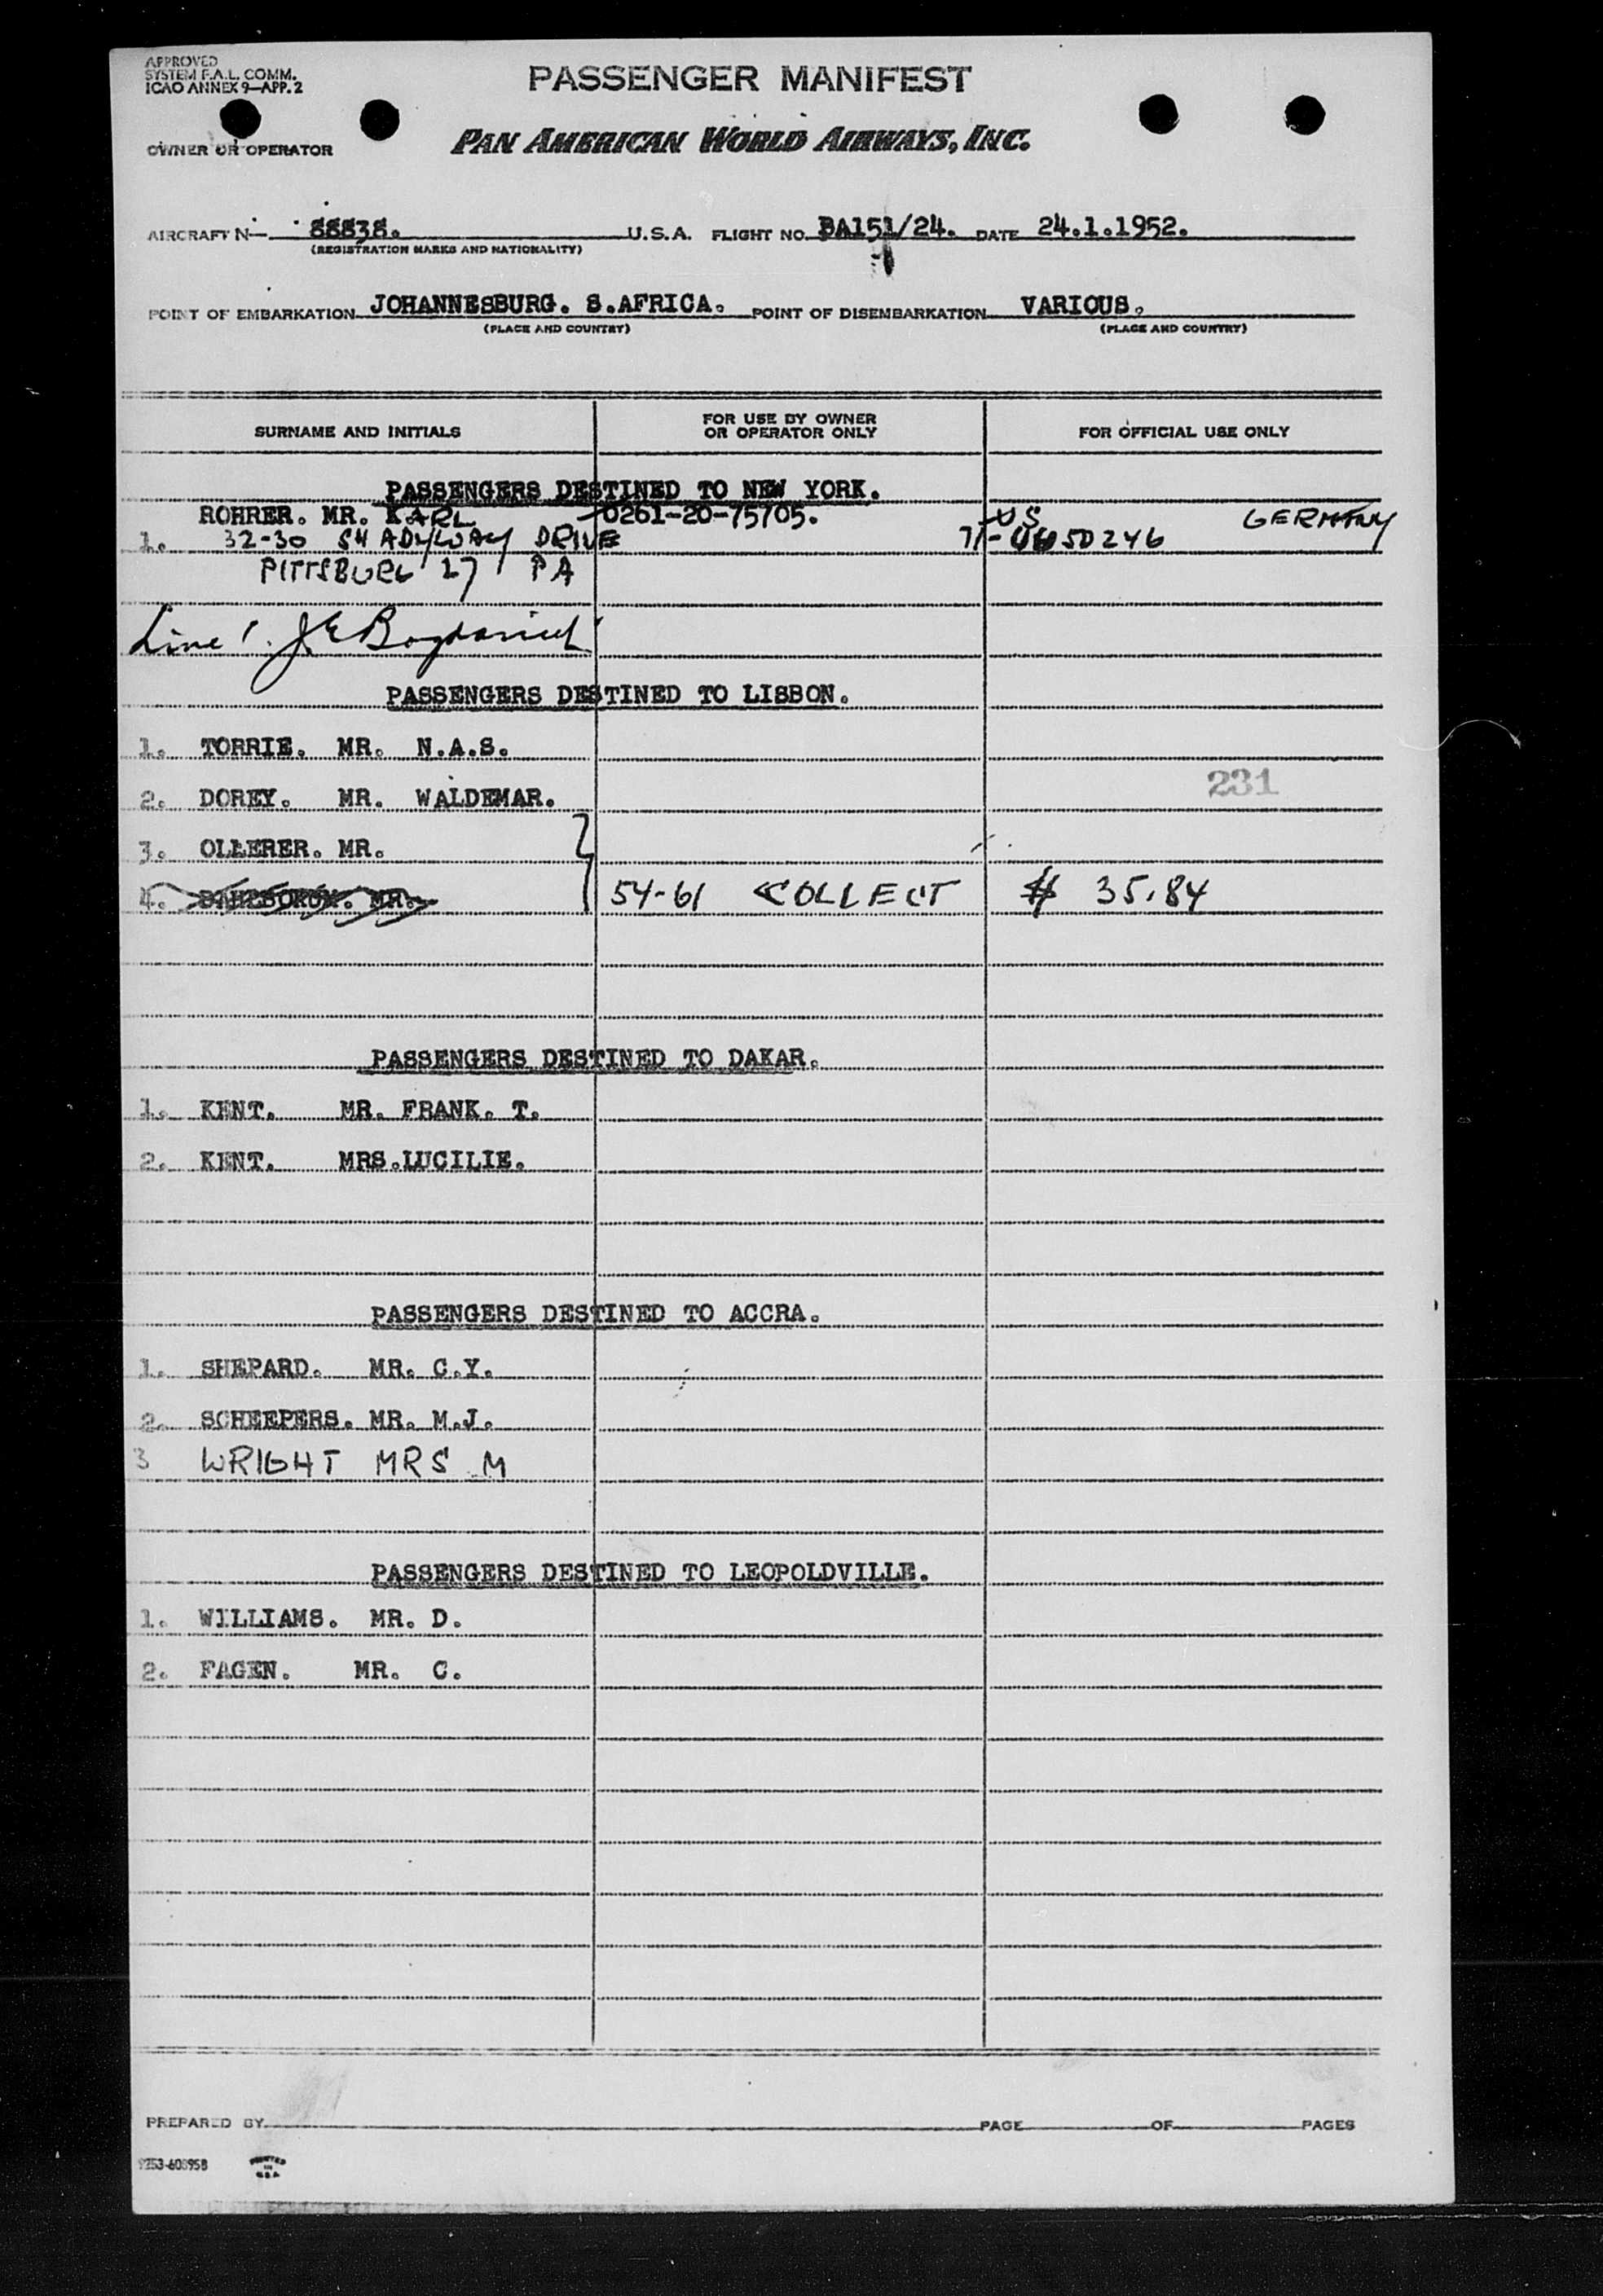 APPROVED
SYSTEM F.A.L. COMM.
ICAO ANNEX 9—APP. 2
PASSENGER MANIFEST
OWNER OR OPERATOR PAN AMERICAN WORLD AIRWAYS, INC.
AIRCRAFT N— 88838. U.S.A. FLIGHT NO. BA151/24. DATE 24.1.1952.
(REGISTRATION MARKS AND NATIONALITY)
POINT OF EMBARKATION JOHANNESBURG. S.AFRICA. POINT OF DISEMBARKATION VARIOUS.
(PLACE AND COUNTRY) (PLACE AND COUNTRY)
SURNAME AND INITIALS FOR USE BY OWNER OR OPERATOR ONLY FOR OFFICIAL USE ONLY
PASSENGERS DESTINED TO NEW YORK.
ROHRER. MR. KARL 0261-20-75705. US GERMANY
1. 32-30 SHADYWAY DRIVE
PITTSBURG 27 PA
Line 1.
PASSENGERS DESTINED TO LISBON.
1. TORRIE. MR. N.A.S.
231
2. DOREY. MR. WALDEMAR.
3. OLLERER. MR.
4. MR. 54-61 COLLECT $ 35.84
PASSENGERS DESTINED TO DAKAR.
1. KENT. MR. FRANK. T.
2. KENT. MRS.LUCILIE.
PASSENGERS DESTINED TO ACCRA.
1. SHEPARD. MR. C.Y.
2. SCHEEPERS. MR. M.J.
3 WRIGHT MRS M
PASSENGERS DESTINED TO LEOPOLDVILLE.
1. WILLIAMS. MR. D.
2. FAGEN. MR. C.
PREPARED BY PAGE OF PAGES
PRINTED IN U.S.A.